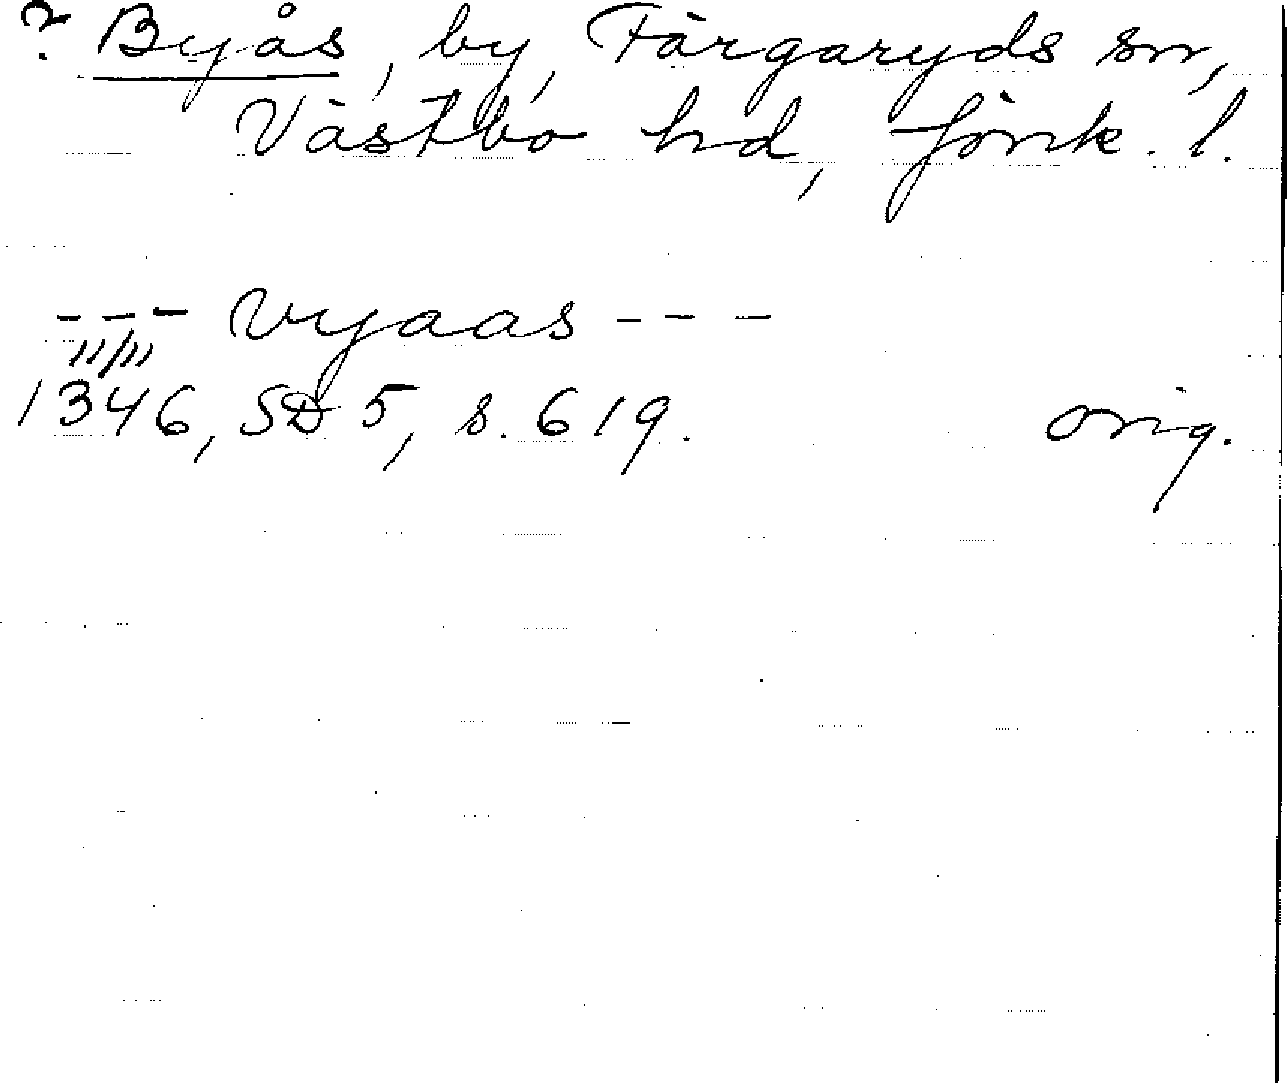 ? Byås, by, Färgaryds sn,
Västbo hd, Jönk. l.
--- Vyaas ---
11/11
1346, SD 5, s. 619. orig.